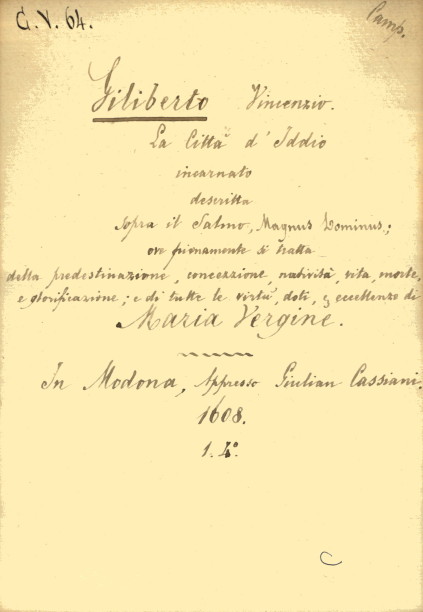 C. V. 64.
Camp.
Giliberto Vincenzio.
La Città d'Iddio
incarnato
descritta
sopra il Salmo, Magnus Dominus;
ove pienamente si tratta
della predestinazione, concezzione, natività, vita, morte,
e glorificazione; e di tutte le virtù, doti, ed eccellenze di
Maria Vergine.
In Modona, Appresso Giulian Cassiani.
1608.
1. 4º.
C